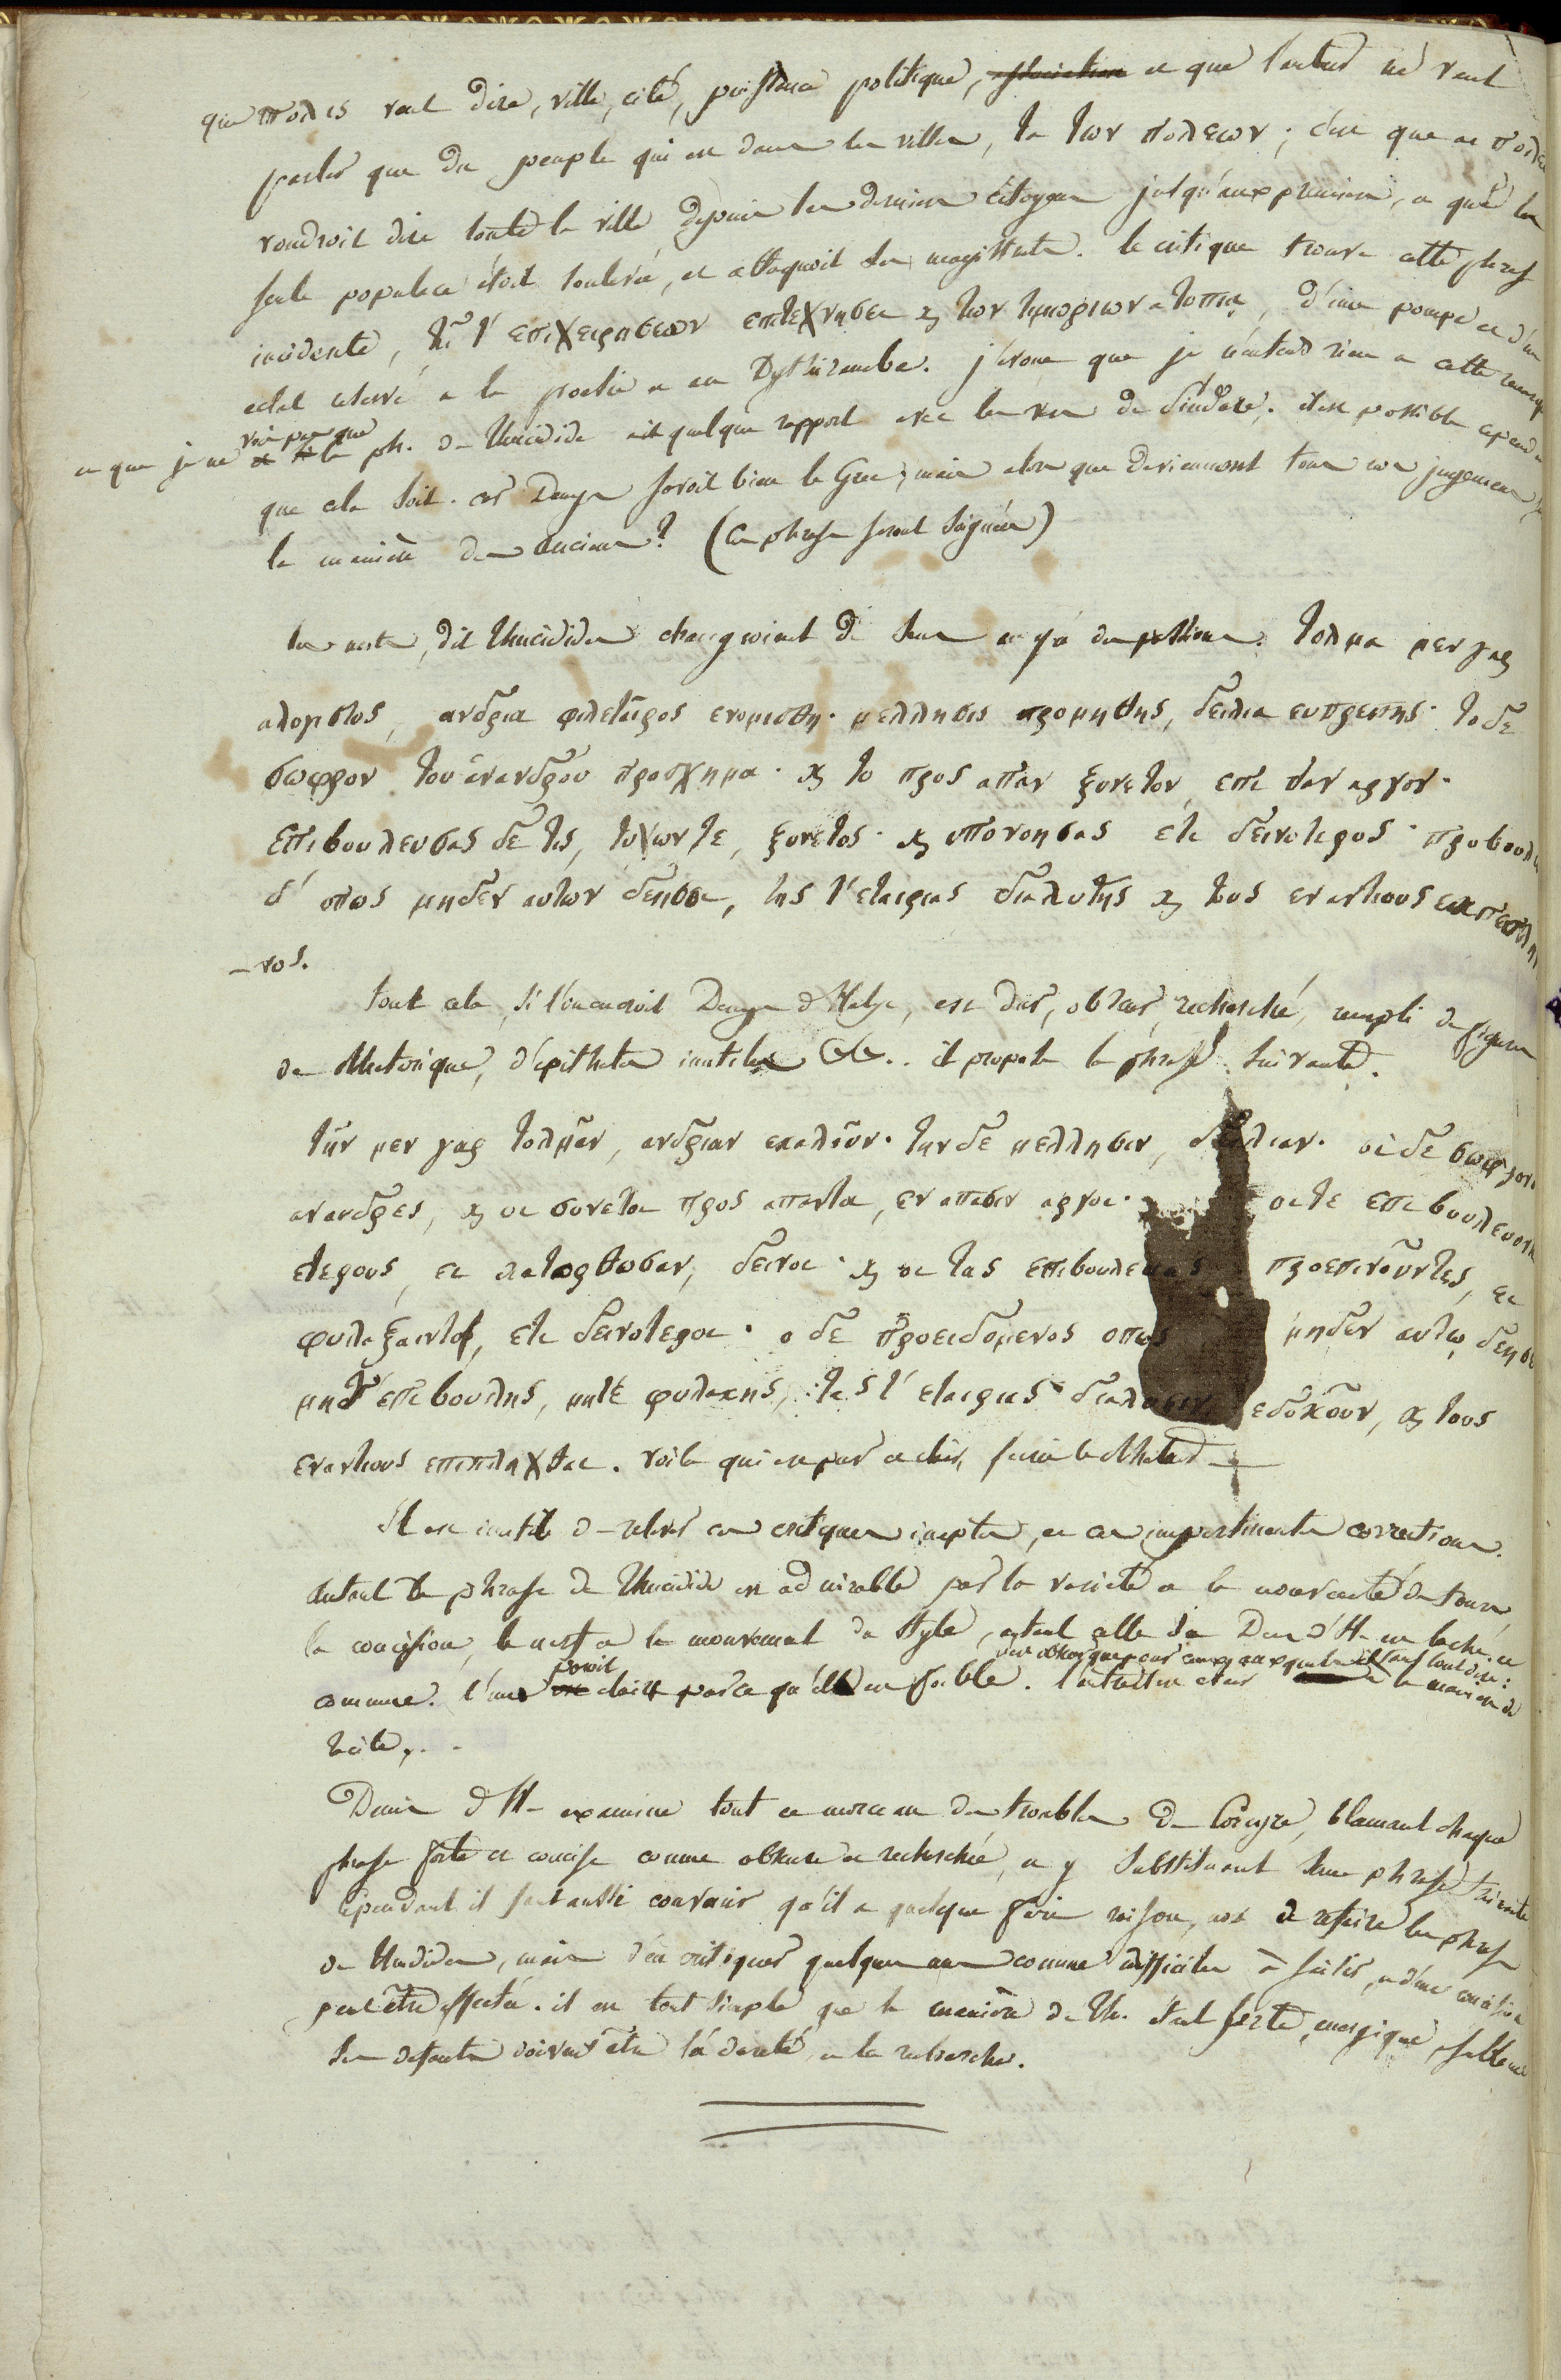 que πολις veut dire, ville, cité, puissance politique, et que l'auteur ne veut
parler que du peuple qui est dans les villes, τα των πολεων; c'est que αι πολεις
voudroit dire toute la ville depuis les derniers citoyens jusqu'aux premiers, et que la
seule populace étoit soulevée, et attaquoit les magistrats. le critique trouve cette phrase
incidente, των τ' επιχειρησεων επιτεχνησει ϗ των τιμωριων ατοπια, d'une pompe et d'un
eclat reservé a la poesie et au Dythirambe. j'avoue que je n'entends rien a cette remarque
et que je ne vois pas que la ph. de Thucidide ait quelque rapport avec les vers de Pindare. il est possible cependant
que cela soit. car Denys savoit bien le Grec; mais alors que deviennent tous ces jugemens sur
la maniere des anciens? (Ces phrases seront soignées)
les mots, dit Thucidide changeoient de sens au gré des passions. τολμα μεν γαρ
αλογιστος, ανδρια φιλεταιρος ενομισθη· μελλησις προμηθης, δειλια ευπρεπης· το δε
σωφρον του ανανδρου προσχημα· ϗ το προς απαν ξυνετον, επι παν αργον·
επιβουλευσας δε τις, τυχων τε, ξυνετος· ϗ υπονοησας ετι δεινοτερος· προβουλευσας
δ' οπως μηδεν αυτων δεησει, της τ' εταιριας διαλυτης ϗ τους εναντιους εκπεπληγμε
-νος.
tout cela, si l'on en croit Denys d'Halyc, est dur, obscur, recherché, rempli de figures
de Rhetorique, d'epithetes inutiles &c &c.. il propose la phrase suivante.
την μεν γαρ τολμαν, ανδριαν εκαλουν· την δε μελλησιν, δειλιαν· οι δε σωφρονες
ανανδρες, ϗ οι συνετοι προς απαντα, εν απασιν αργοι· οι τε επιβουλευσαντες
ετερους, ει κατορθωσαν, δεινοι· ϗ οι τας επιβουλευσας προεπινοουντες, ει
φυλαξαιντο, ετι δεινοτεροι· ο δε προειδομενος οπως μηδεν αυτω δεησει
μητ' επιβουλης, μητε φυλακης, τας τ' εταιριας διαλυσειν εδοκουν, ϗ τους
εναντιους επιπληχθαι. voila qui est pur et clair, s'ecrie le Rheteur —
Il est inutile de relever ces critiques ineptes, et ces impertinentes corrections.
Autant la phrase de Thucidide est admirable par la varieté et la nouveauté des tours
la concision, le nerf et le mouvement du style, autant celle de Den. d'H. est lache et
commune. l'une paroit claire parce qu'elle est foible. l'autre n'est obscur que pour ceux auxquels il faut tout dire: la maniere de
tacite, . .
Denis d'H- examine tout ce morceau des troubles de Corcyre, blamant chaque
phrase forte et concise comme obscure et recherchée, et y substituant une phrase triviale
cependant il faut aussi convenir qu'il a quelque fois raison, non de refaire les phrases
de Thucidide, mais d'en critiquer quelques unes comme difficiles à saisir, et d'une concision
peut etre affectée. il est tout simple que la maniere de Th. étant forte, energique,
ses defauts doivent etre la dureté et la recherche.